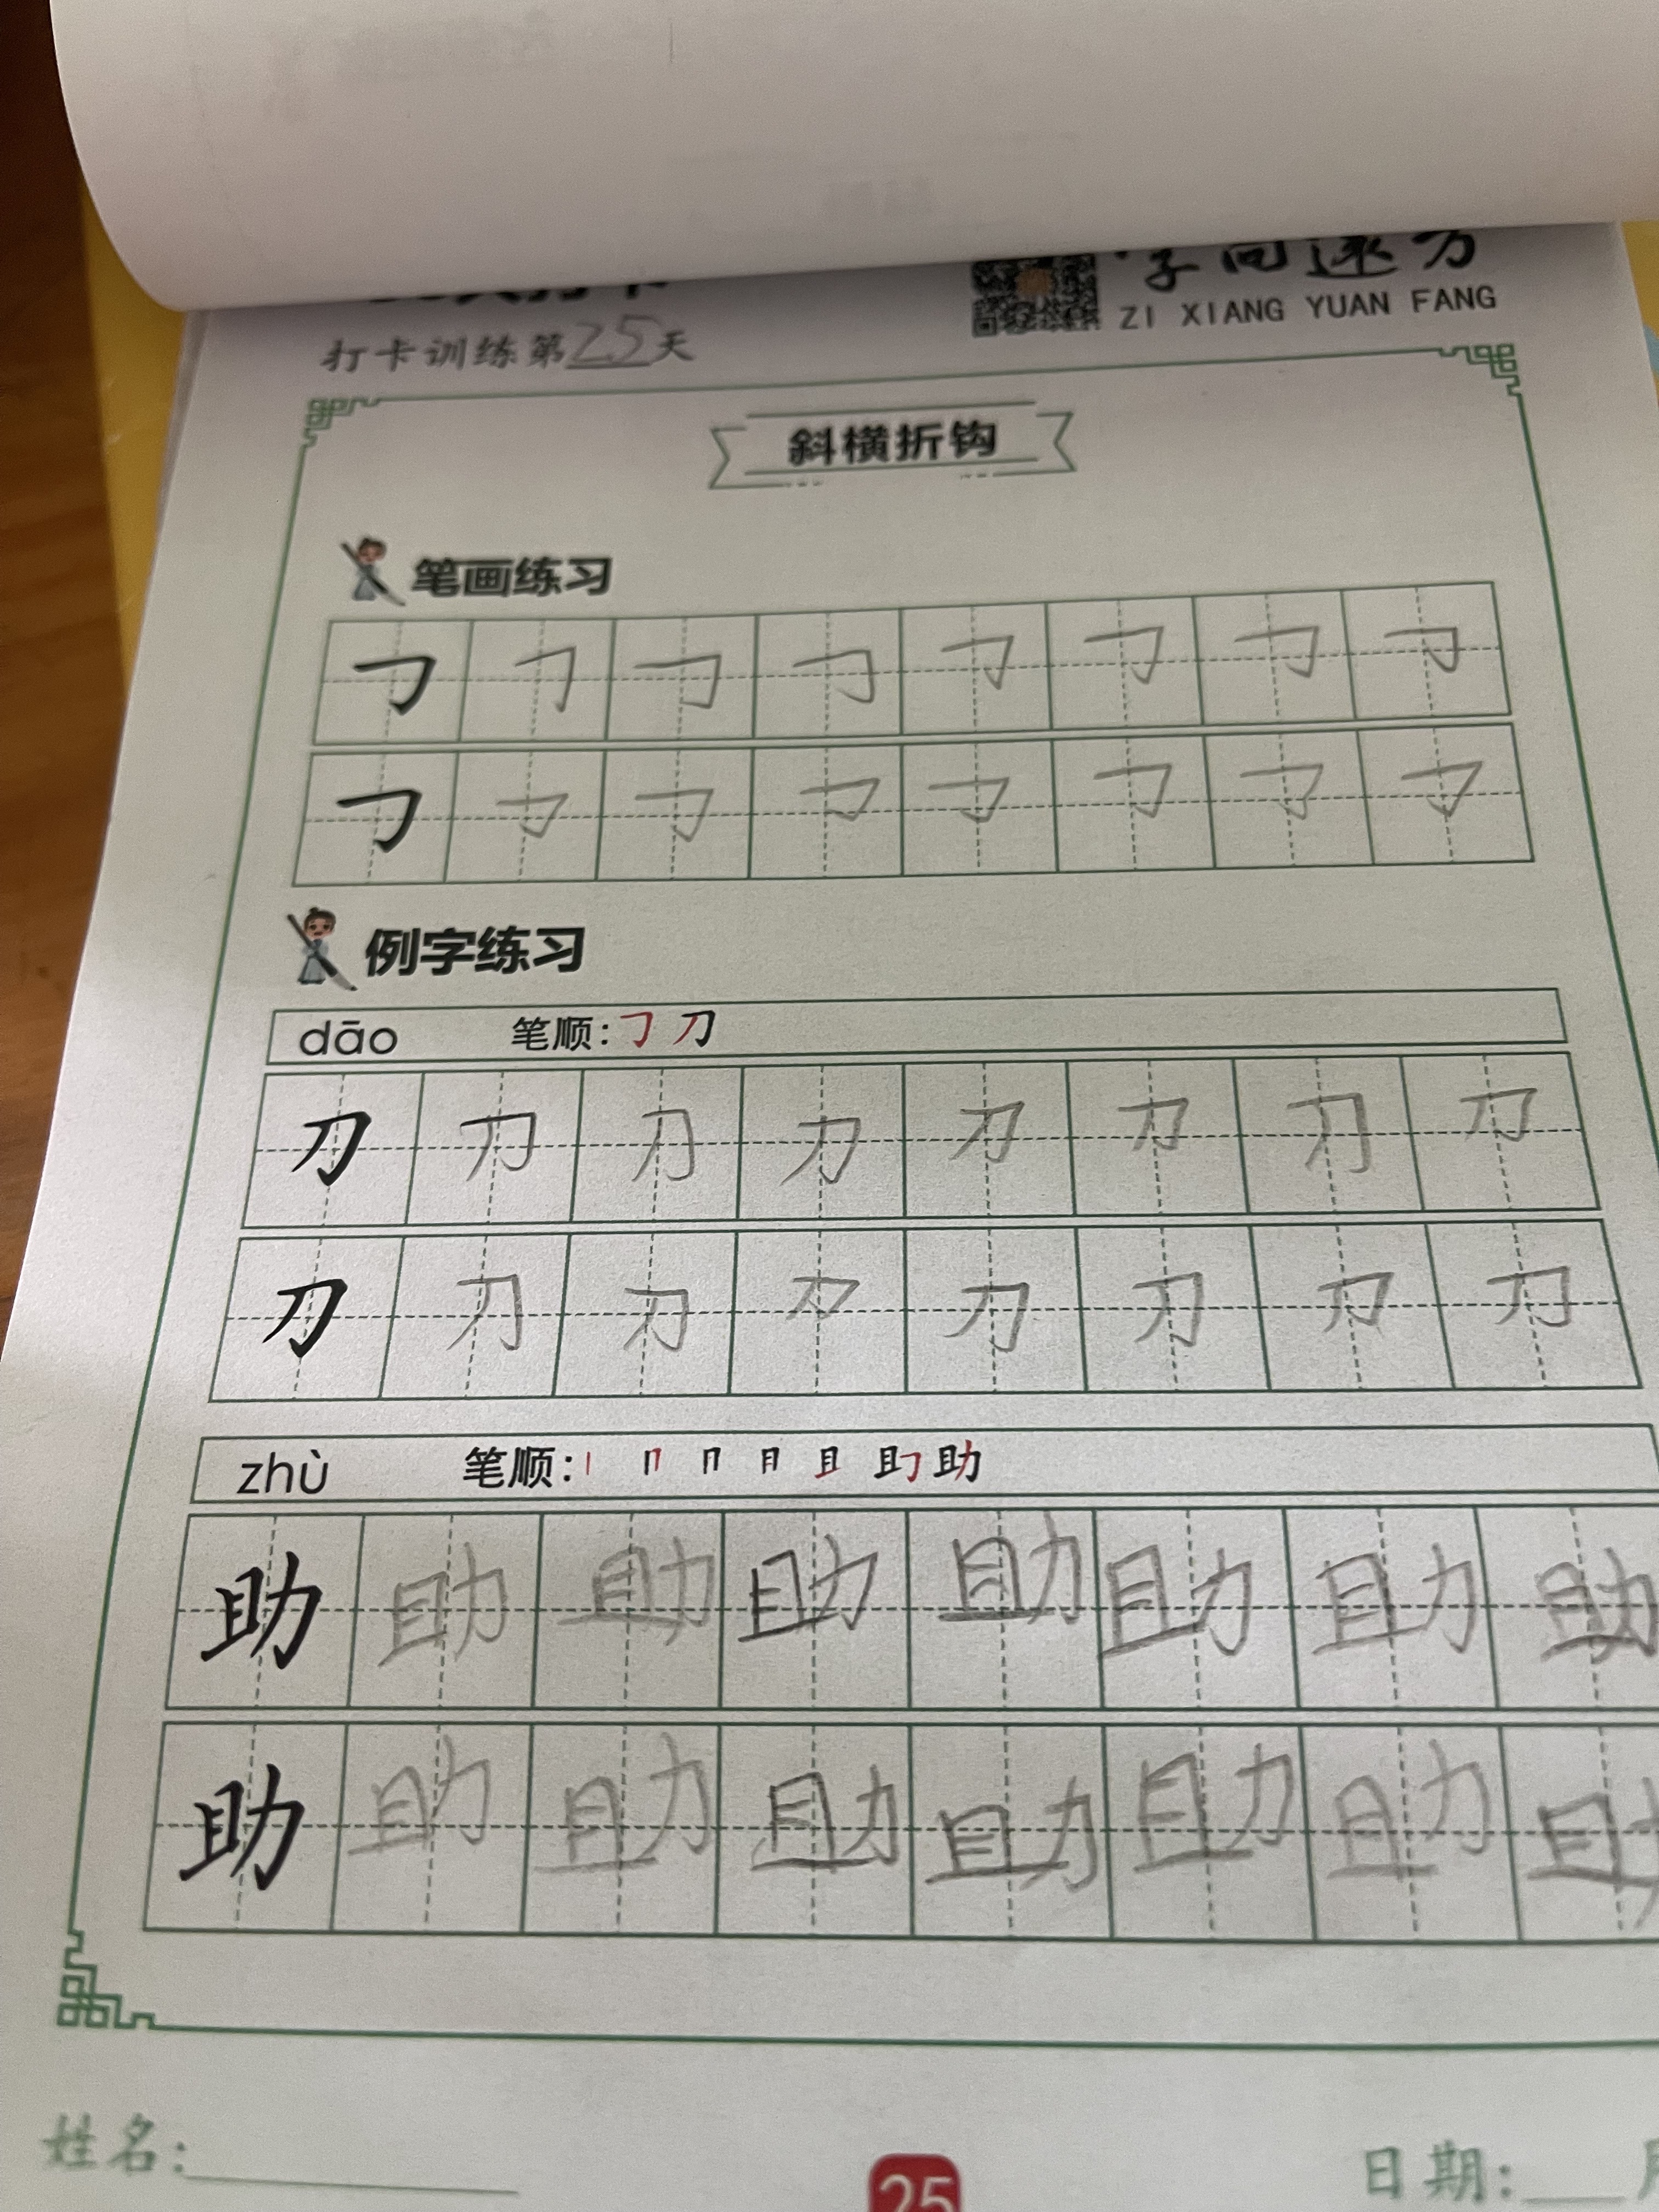 字向远方
ZI XIANG YUAN FANG
打卡训练第25天
斜横折钩
笔画练习
㇆ ㇆ ㇆ ㇆ ㇆ ㇆ ㇆ ㇆
㇆ ㇆ ㇆ ㇆ ㇆ ㇆ ㇆ ㇆
例字练习
dāo 笔顺:㇆ 刀
刀 刀 刀 刀 刀 刀 刀 刀
刀 刀 刀 刀 刀 刀 刀 刀
zhù 笔顺:丨 冂 冃 月 且 助
助 助 助 助 助 助 助 助
助 助 助 助 助 助 助 助
姓名:
25
日期: 月